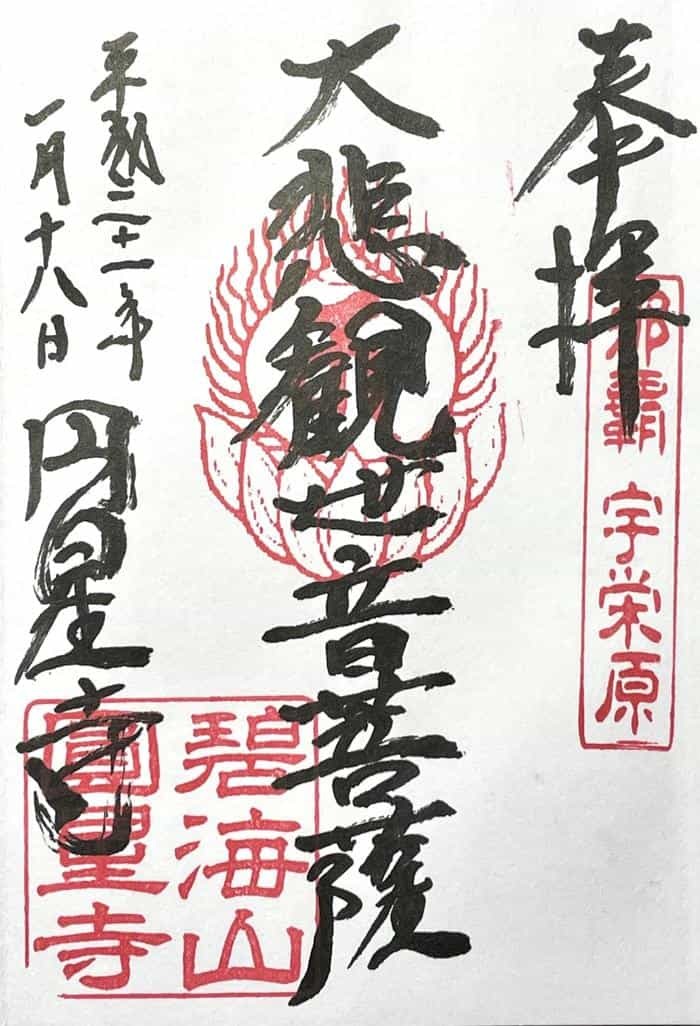 奉拝
那覇 宇栄原
大悲観世音菩薩
碧海山
圓星寺
平成二十一年
一月十八日
円星寺